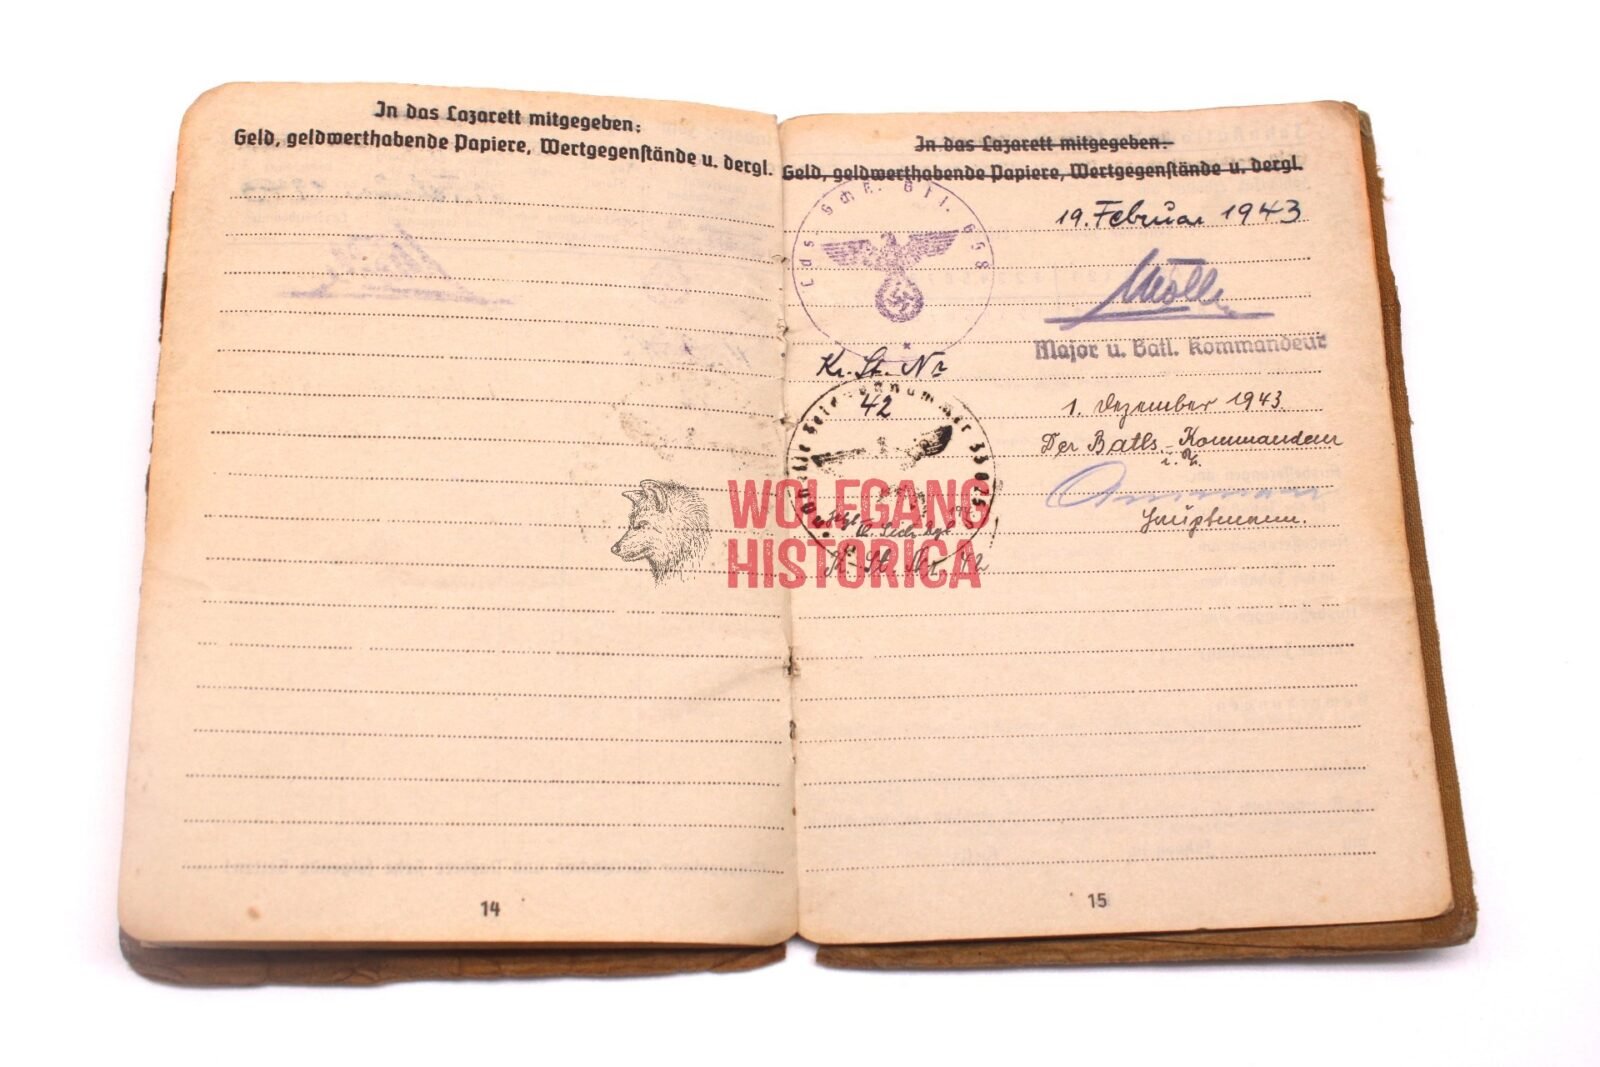 In das Lazarett mitgegeben:
Geld, geldwerthabende Papiere, Wertgegenstände u. dergl.
14
In das Lazarett mitgegeben:
Geld, geldwerthabende Papiere, Wertgegenstände u. dergl.
Lds. Sch. Btl. 698
19. Februar 1943
Major u. Batl. Kommandeur
Kr. St. Nr
42
Feldpostnummer
1. Dezember 1943
Der Batls.-Kommandeur
Hauptmann.
K.-St. Nr. 42
WOLFGANG
HISTORICA
15